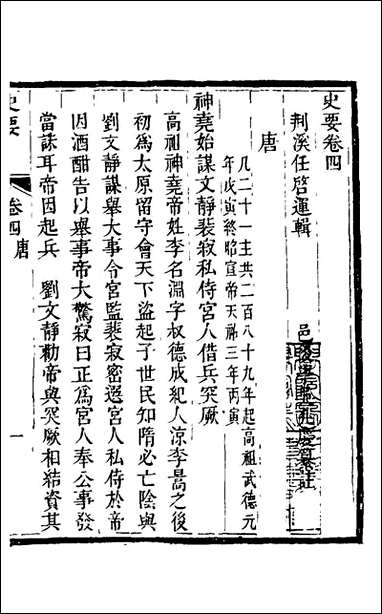 史要卷四
荆溪任啓運輯
邑
註
唐
凡二十一主共二百八十九年起高祖武德元
年戊寅終昭宣帝天祐三年丙寅
神堯始謀文靜裴寂私侍宮人借兵突厥
高祖神堯帝姓李名淵字叔德成紀人涼李暠之後
初為太原留守會天下盜起子世民知隋必亡陰與
劉文靜謀舉大事令宮監裴寂密選宮人私侍於帝
因酒酣告以舉事帝大驚寂曰正為宮人奉公事發
當誅耳帝因起兵　劉文靜勸帝與突厥相結資其
史要
卷四唐
一